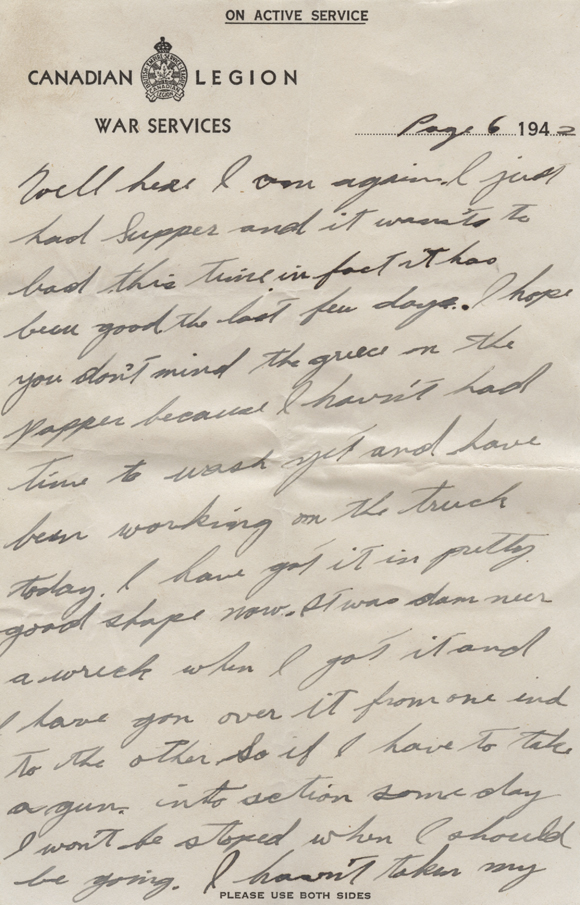 ON ACTIVE SERVICE
CANADIAN LEGION
WAR SERVICES
Page 6 1942
Well here I am again. I just
had Supper and it wasn't to
bad this time in fact it has
been good the last few days. I hope
you don't mind the greece on the
papper because I havn't had
time to wash yet and have
been working on the truck
today. I have got it in pretty
good shape now. It was dam neer
a wreck when I got it and
I have gon over it from one end
to the other So if I have to take
a gun. into action some day
I won't be stoped when I should
be going. I havn't taken my
PLEASE USE BOTH SIDES